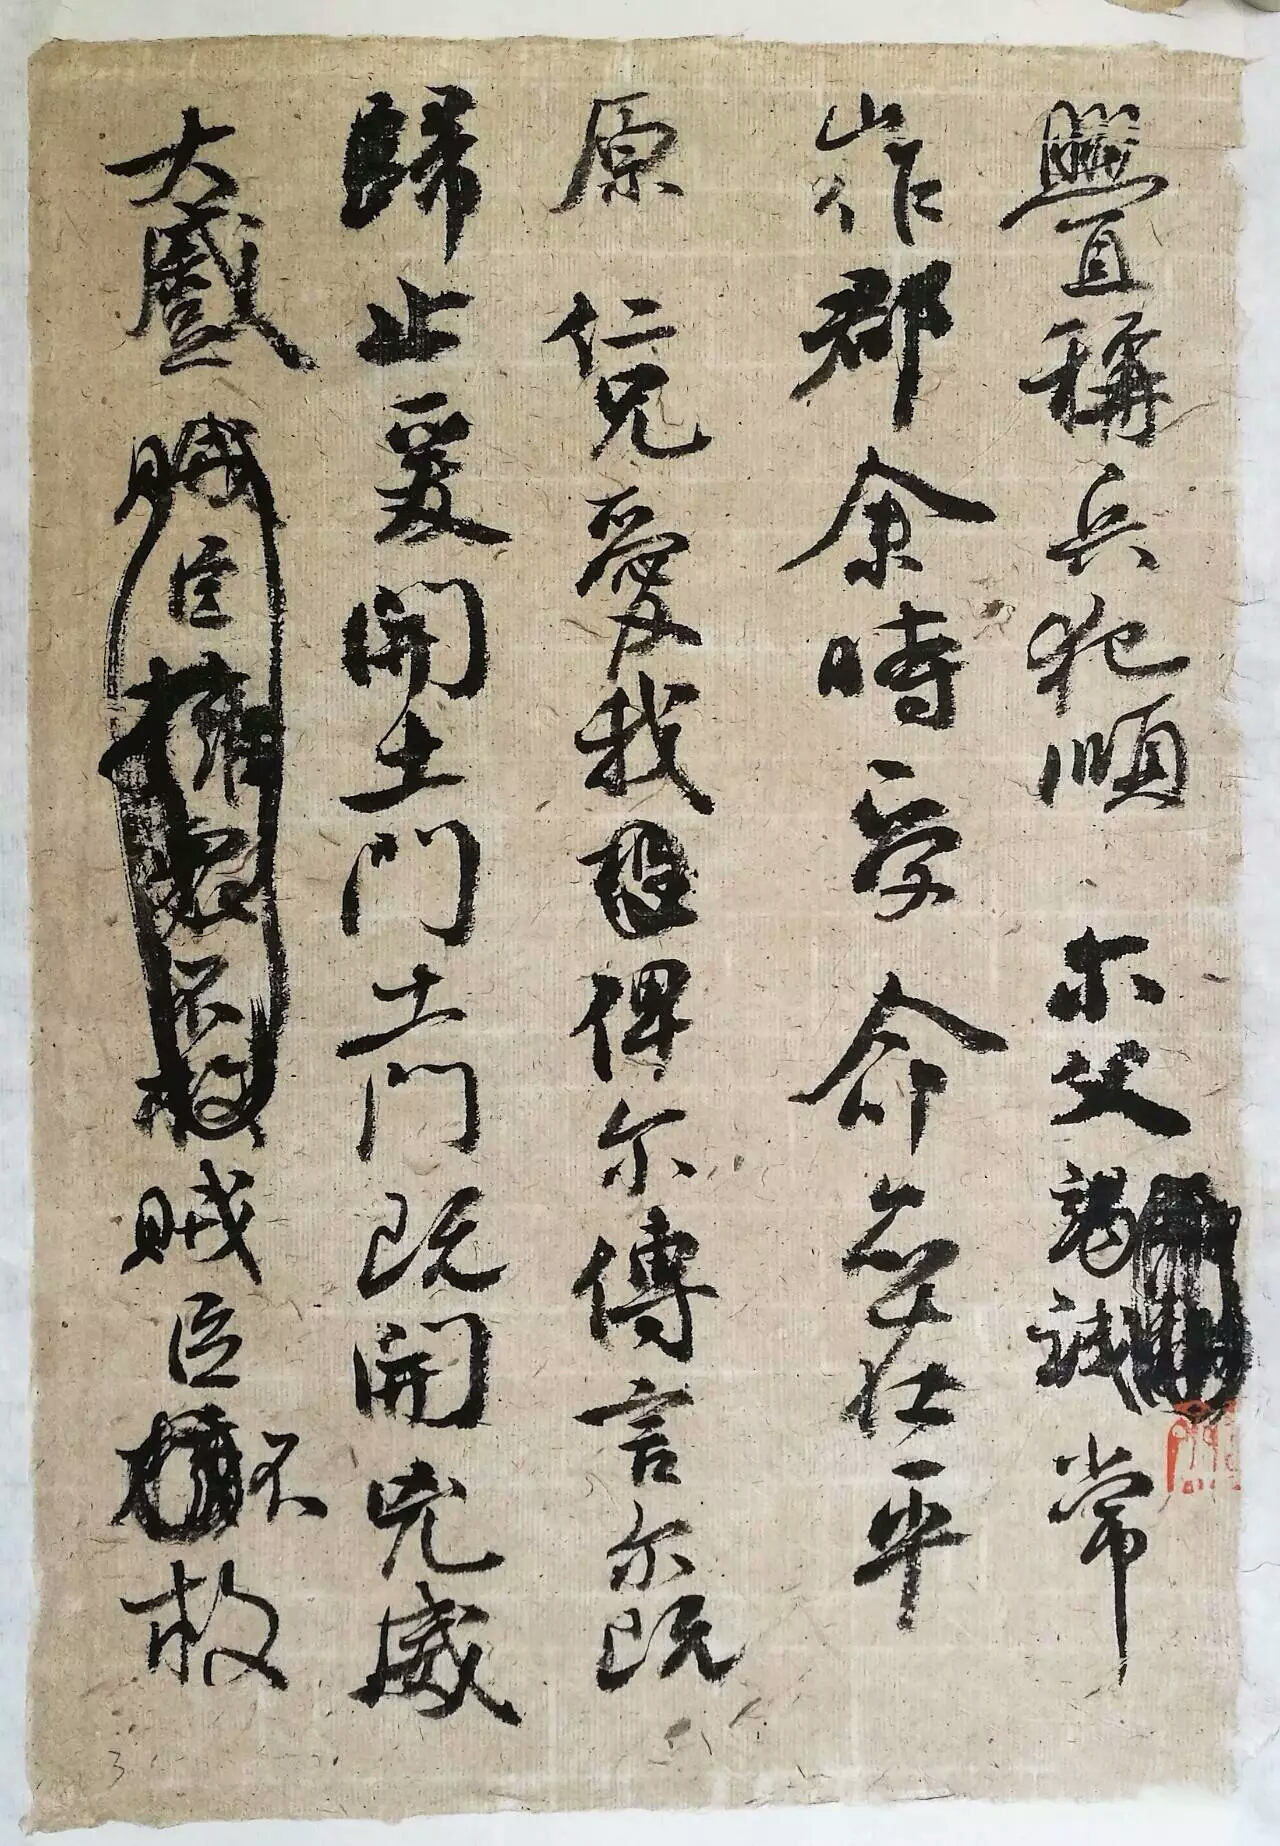 舋稱兵犯順尓父竭誠常
山作郡余時受命亦在平
原仁兄愛我俾尔傳言尔既
歸止爰開土門土門既開兇威
大蹙賊臣擁衆不救賊臣不救